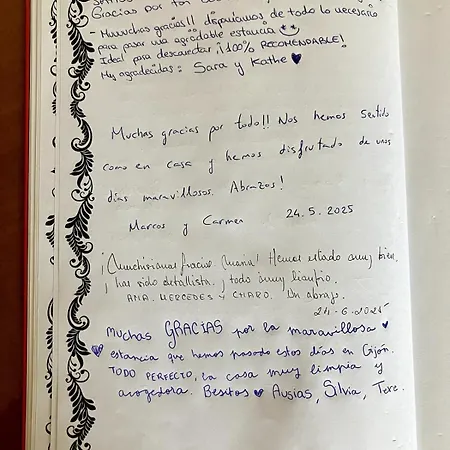 Gracias por
- Muuuchas gracias!! disponíamos de todo lo necesario
para pasar una agradable estancia
Ideal para desconectar ¡100% RECOMENDABLE!
Muy agradecidas: Sara y Kathe ♥
Muchas gracias por todo!! Nos hemos sentido
como en casa y hemos disfrutado de unos
días maravillosos. Abrazos!
Marcos y Carmen 24.5.2025
¡Muchísimas gracias, Hemos estado muy bien,
ha sido detallista, y todo muy limpio.
ANA, MERCEDES y CHARO. Un abrazo.
-6-2025
MUCHAS GRACIAS por la maravillosa ♥
♥ estancia que hemos pasado estos días en Gijón.
TODO PERFECTO, la casa muy limpia y
acogedora. Besitos ♥ Ausias, Silvia, Tere.